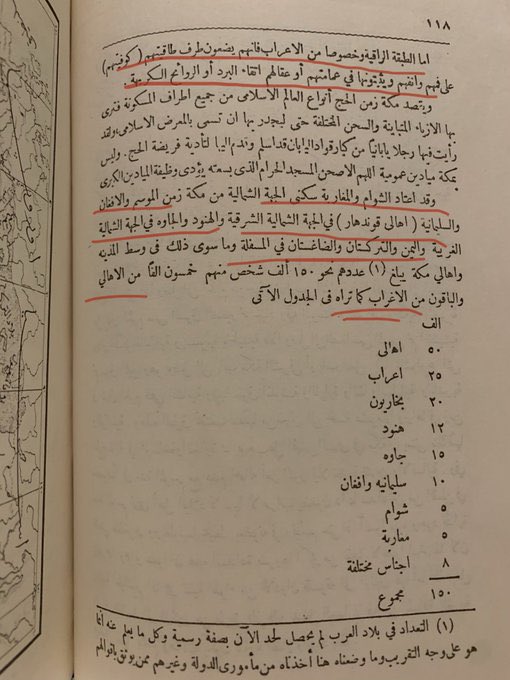 ١١٨
اما الطبقة الراقية وخصوصا من الاعراب فانهم يضعون طرف طاقيتهم (كوفيتهم)
على فمهم وأنفهم ويثبتونها فى عمامتهم أو عقالهم اتقاء البرد أو الروائح الكريهة
ويقصد مكة زمن الحج أنواع العالم الاسلامى من جميع اطراف المسكونة فترى
بها الازياء المتباينة والسحن المختلفة حتى ليجدر بها ان تسمى بالمعرض الاسلامى، ولقد
رأيت فيها رجلا يابانيا من كبار قواد اليابان قد اسلم وقدم اليها لتأدية فريضة الحج. وليس
بمكة ميادين عمومية اللهم الاصحن المسجد الحرام الذى بسعته يؤدى وظيفة الميادين الكبرى
وقد اعتاد الشوام والمغاربة سكنى الجهة الشمالية من مكة زمن الموسم والافغان
والسلمانية (اهالى قوندهار) فى الجهة الشمالية الشرقية والهنود والجاوه فى الجهة الشمالية
الغربية واليمن والتركستان والضاغستان فى المسفلة وما سوى ذلك فى وسط المدينه
واهالي مكة يبلغ (١) عددهم نحو ١٥٠ ألف شخص منهم خمسون الفا من الاهالي
والباقون من الاغراب كما تراه فى الجدول الآتى
الف
٥٠ اهالى
٢٥ اعراب
٢٠ بخاريون
١٢ هنود
١٥ جاوه
١٠ سليمانيه وافغان
٥ شوام
٥ مغاربة
٨ اجناس مختلفة
١٥٠ مجموع
(١) التعداد في بلاد العرب لم يحصل لحد الآن بصفة رسمية وكل ما يعلم عنه انما
هو على وجه التقريب وما وضعناه هنا أخذناه من مأمورى الدولة وغيرهم ممن يوثق باقوالهم